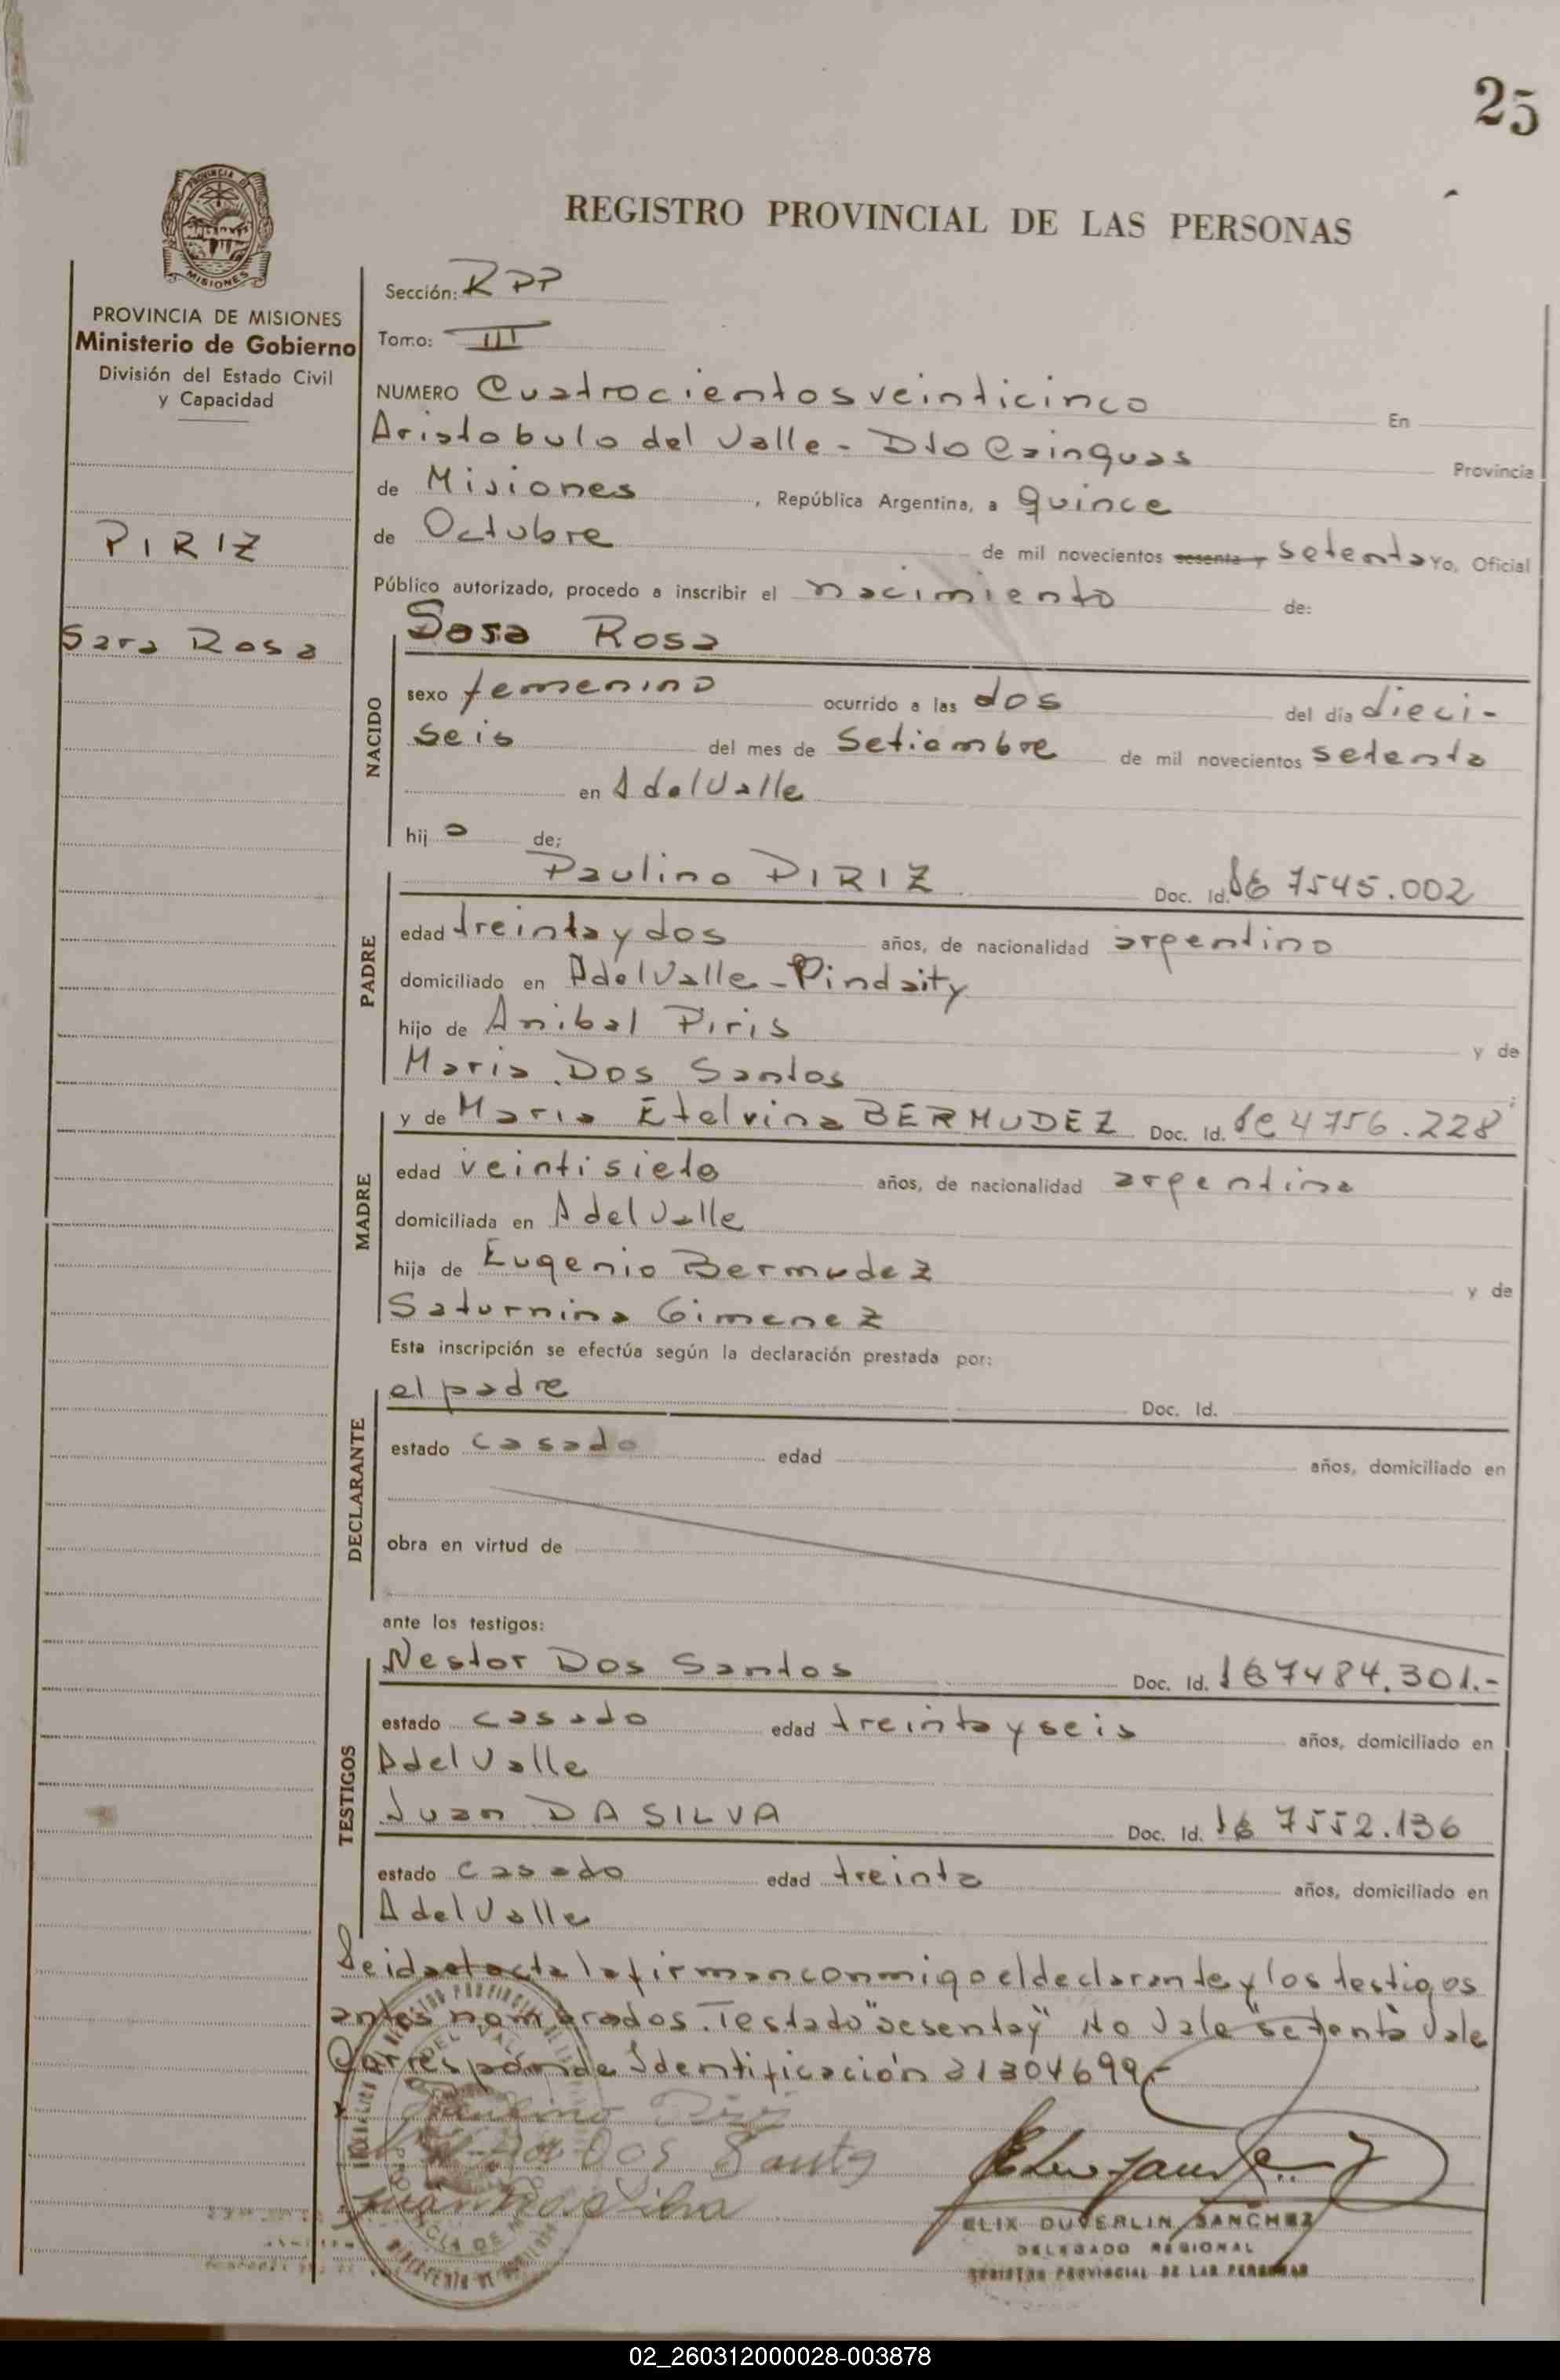 25
REGISTRO PROVINCIAL DE LAS PERSONAS
PROVINCIA DE MISIONES
Ministerio de Gobierno
División del Estado Civil
y Capacidad
PIRIZ
Sara Rosa
Sección: RPP
Tomo: III
NUMERO Cuatrocientos veinticinco En
Aristobulo del Valle - Dto Cainguas Provincia
de Misiones, República Argentina, a quince
de Octubre de mil novecientos sesenta y setenta Yo, Oficial
Público autorizado, procedo a inscribir el nacimiento de:
NACIDO
Sara Rosa
sexo femenino ocurrido a las dos del día dieci-
seis del mes de Setiembre de mil novecientos setenta
en A del Valle
hija de:
PADRE
Paulino PIRIZ Doc. Id. 7545.002
edad treinta y dos años, de nacionalidad argentino
domiciliado en A del Valle - Pindaity
hijo de Anibal Piris y de
Maria Dos Santos
MADRE
y de Maria Etelvina BERMUDEZ Doc. Id. 4756.228
edad veintisiete años, de nacionalidad argentina
domiciliada en A del Valle
hija de Eugenio Bermudez y de
Saturnina Gimenez
Esta inscripción se efectúa según la declaración prestada por:
DECLARANTE
el padre Doc. Id.
estado casado edad años, domiciliado en
obra en virtud de
ante los testigos:
TESTIGOS
Nestor Dos Santos Doc. Id. 7484.301.-
estado casado edad treinta y seis años, domiciliado en
A del Valle
Juan DA SILVA Doc. Id. 7552.136
estado casado edad treinta años, domiciliado en
A del Valle
Leida el acta la firman conmigo el declarante y los testigos
antes nombrados. Testado "sesenta y" No Vale "setenta" Vale
Corresponde Identificación 21304699.-
Paulino Piriz
Dos Santos
Juan Da Silva
ELIX DUVERLIN SANCHEZ
DELEGADO REGIONAL
REGISTRO PROVINCIAL DE LAS PERSONAS
02_260312000028-003878